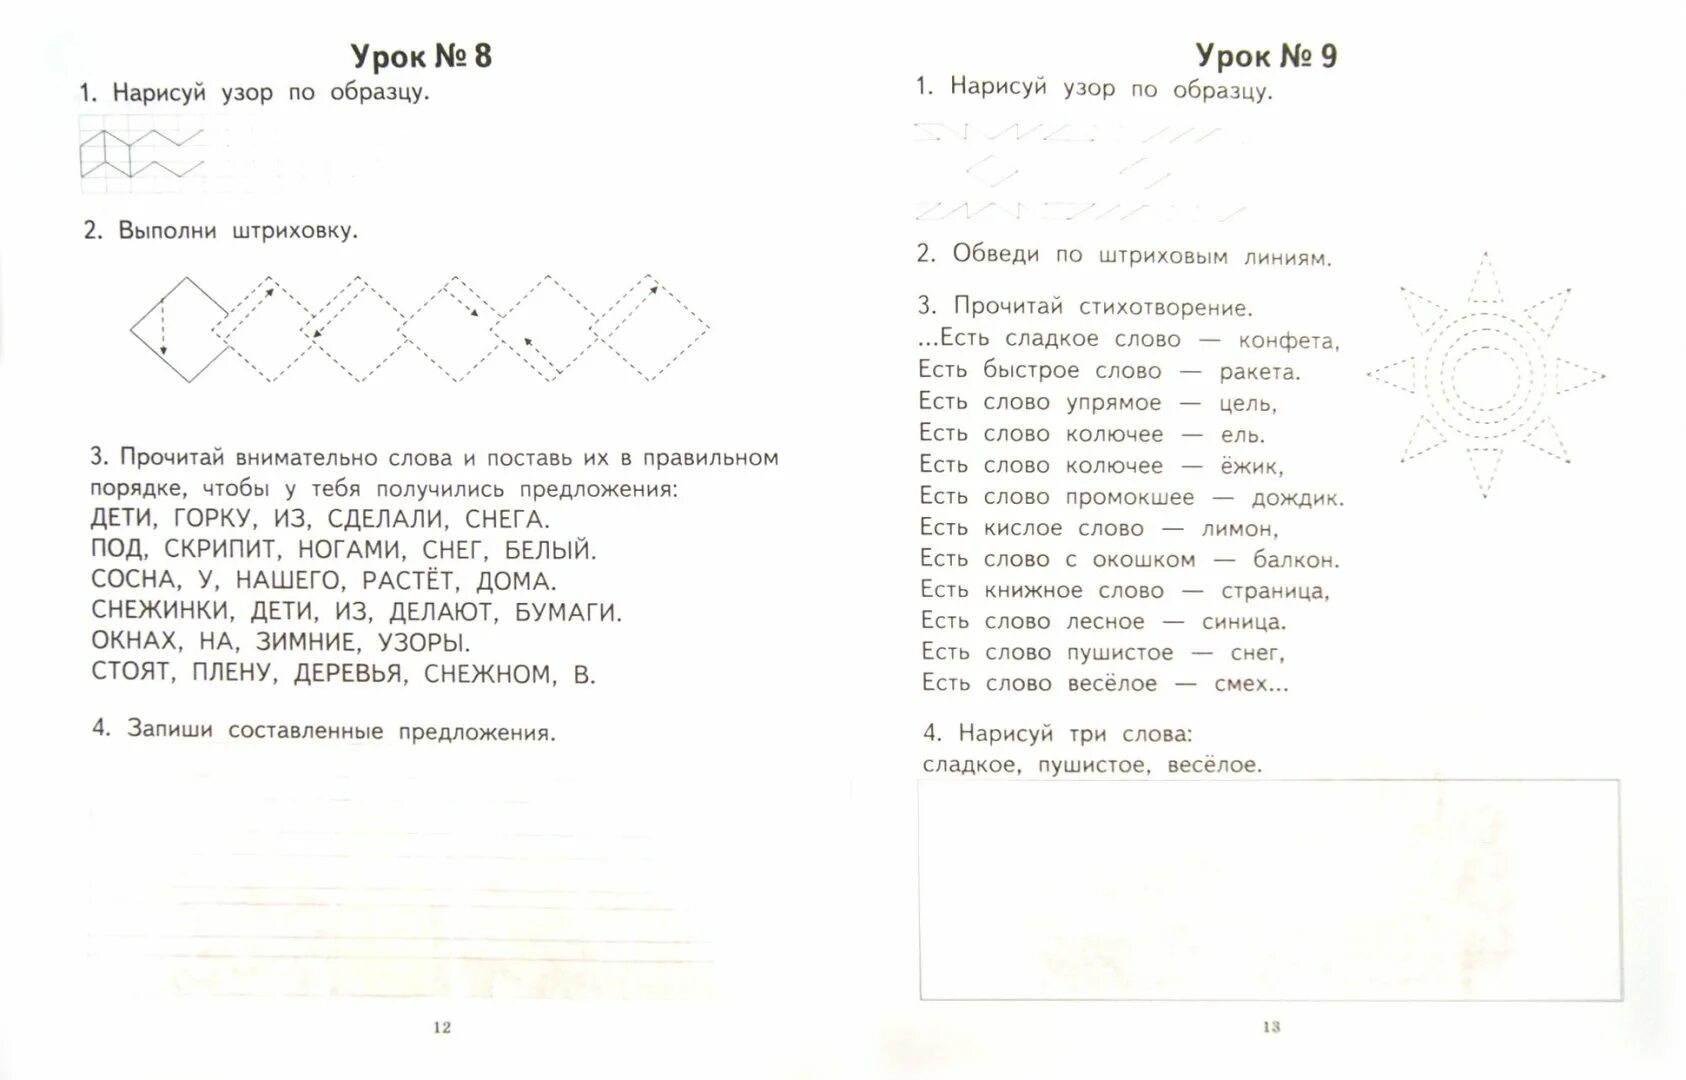 Урок № 8
1. Нарисуй узор по образцу.
2. Выполни штриховку.
3. Прочитай внимательно слова и поставь их в правильном
порядке, чтобы у тебя получились предложения:
ДЕТИ, ГОРКУ, ИЗ, СДЕЛАЛИ, СНЕГА.
ПОД, СКРИПИТ, НОГАМИ, СНЕГ, БЕЛЫЙ.
СОСНА, У, НАШЕГО, РАСТЁТ, ДОМА.
СНЕЖИНКИ, ДЕТИ, ИЗ, ДЕЛАЮТ, БУМАГИ.
ОКНАХ, НА, ЗИМНИЕ, УЗОРЫ.
СТОЯТ, ПЛЕНУ, ДЕРЕВЬЯ, СНЕЖНОМ, В.
4. Запиши составленные предложения.
12
Урок № 9
1. Нарисуй узор по образцу.
2. Обведи по штриховым линиям.
3. Прочитай стихотворение.
...Есть сладкое слово — конфета,
Есть быстрое слово — ракета.
Есть слово упрямое — цель,
Есть слово колючее — ель.
Есть слово колючее — ёжик,
Есть слово промокшее — дождик.
Есть кислое слово — лимон,
Есть слово с окошком — балкон.
Есть книжное слово — страница,
Есть слово лесное — синица.
Есть слово пушистое — снег,
Есть слово весёлое — смех...
4. Нарисуй три слова:
сладкое, пушистое, весёлое.
13